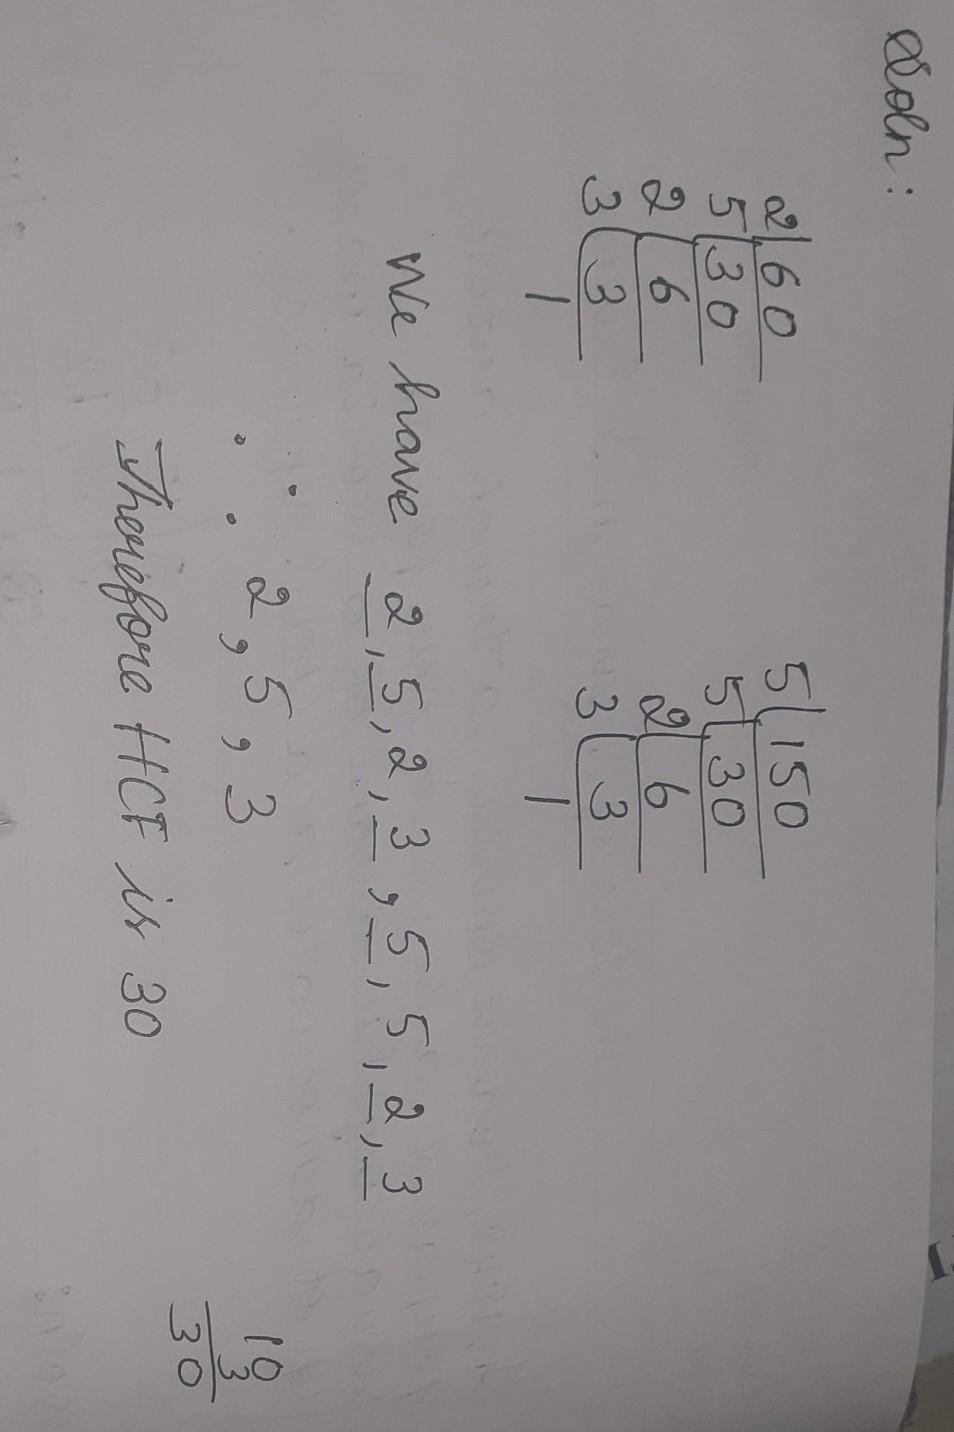 Soln:
2 60 5 150
5 30 5 30
2 6 2 6
3 3 3 3
1 1
We have 2, 5, 2, 3, 5, 5, 2, 3
∴ 2, 5, 3
Therefore HCF is 30
10
3
30